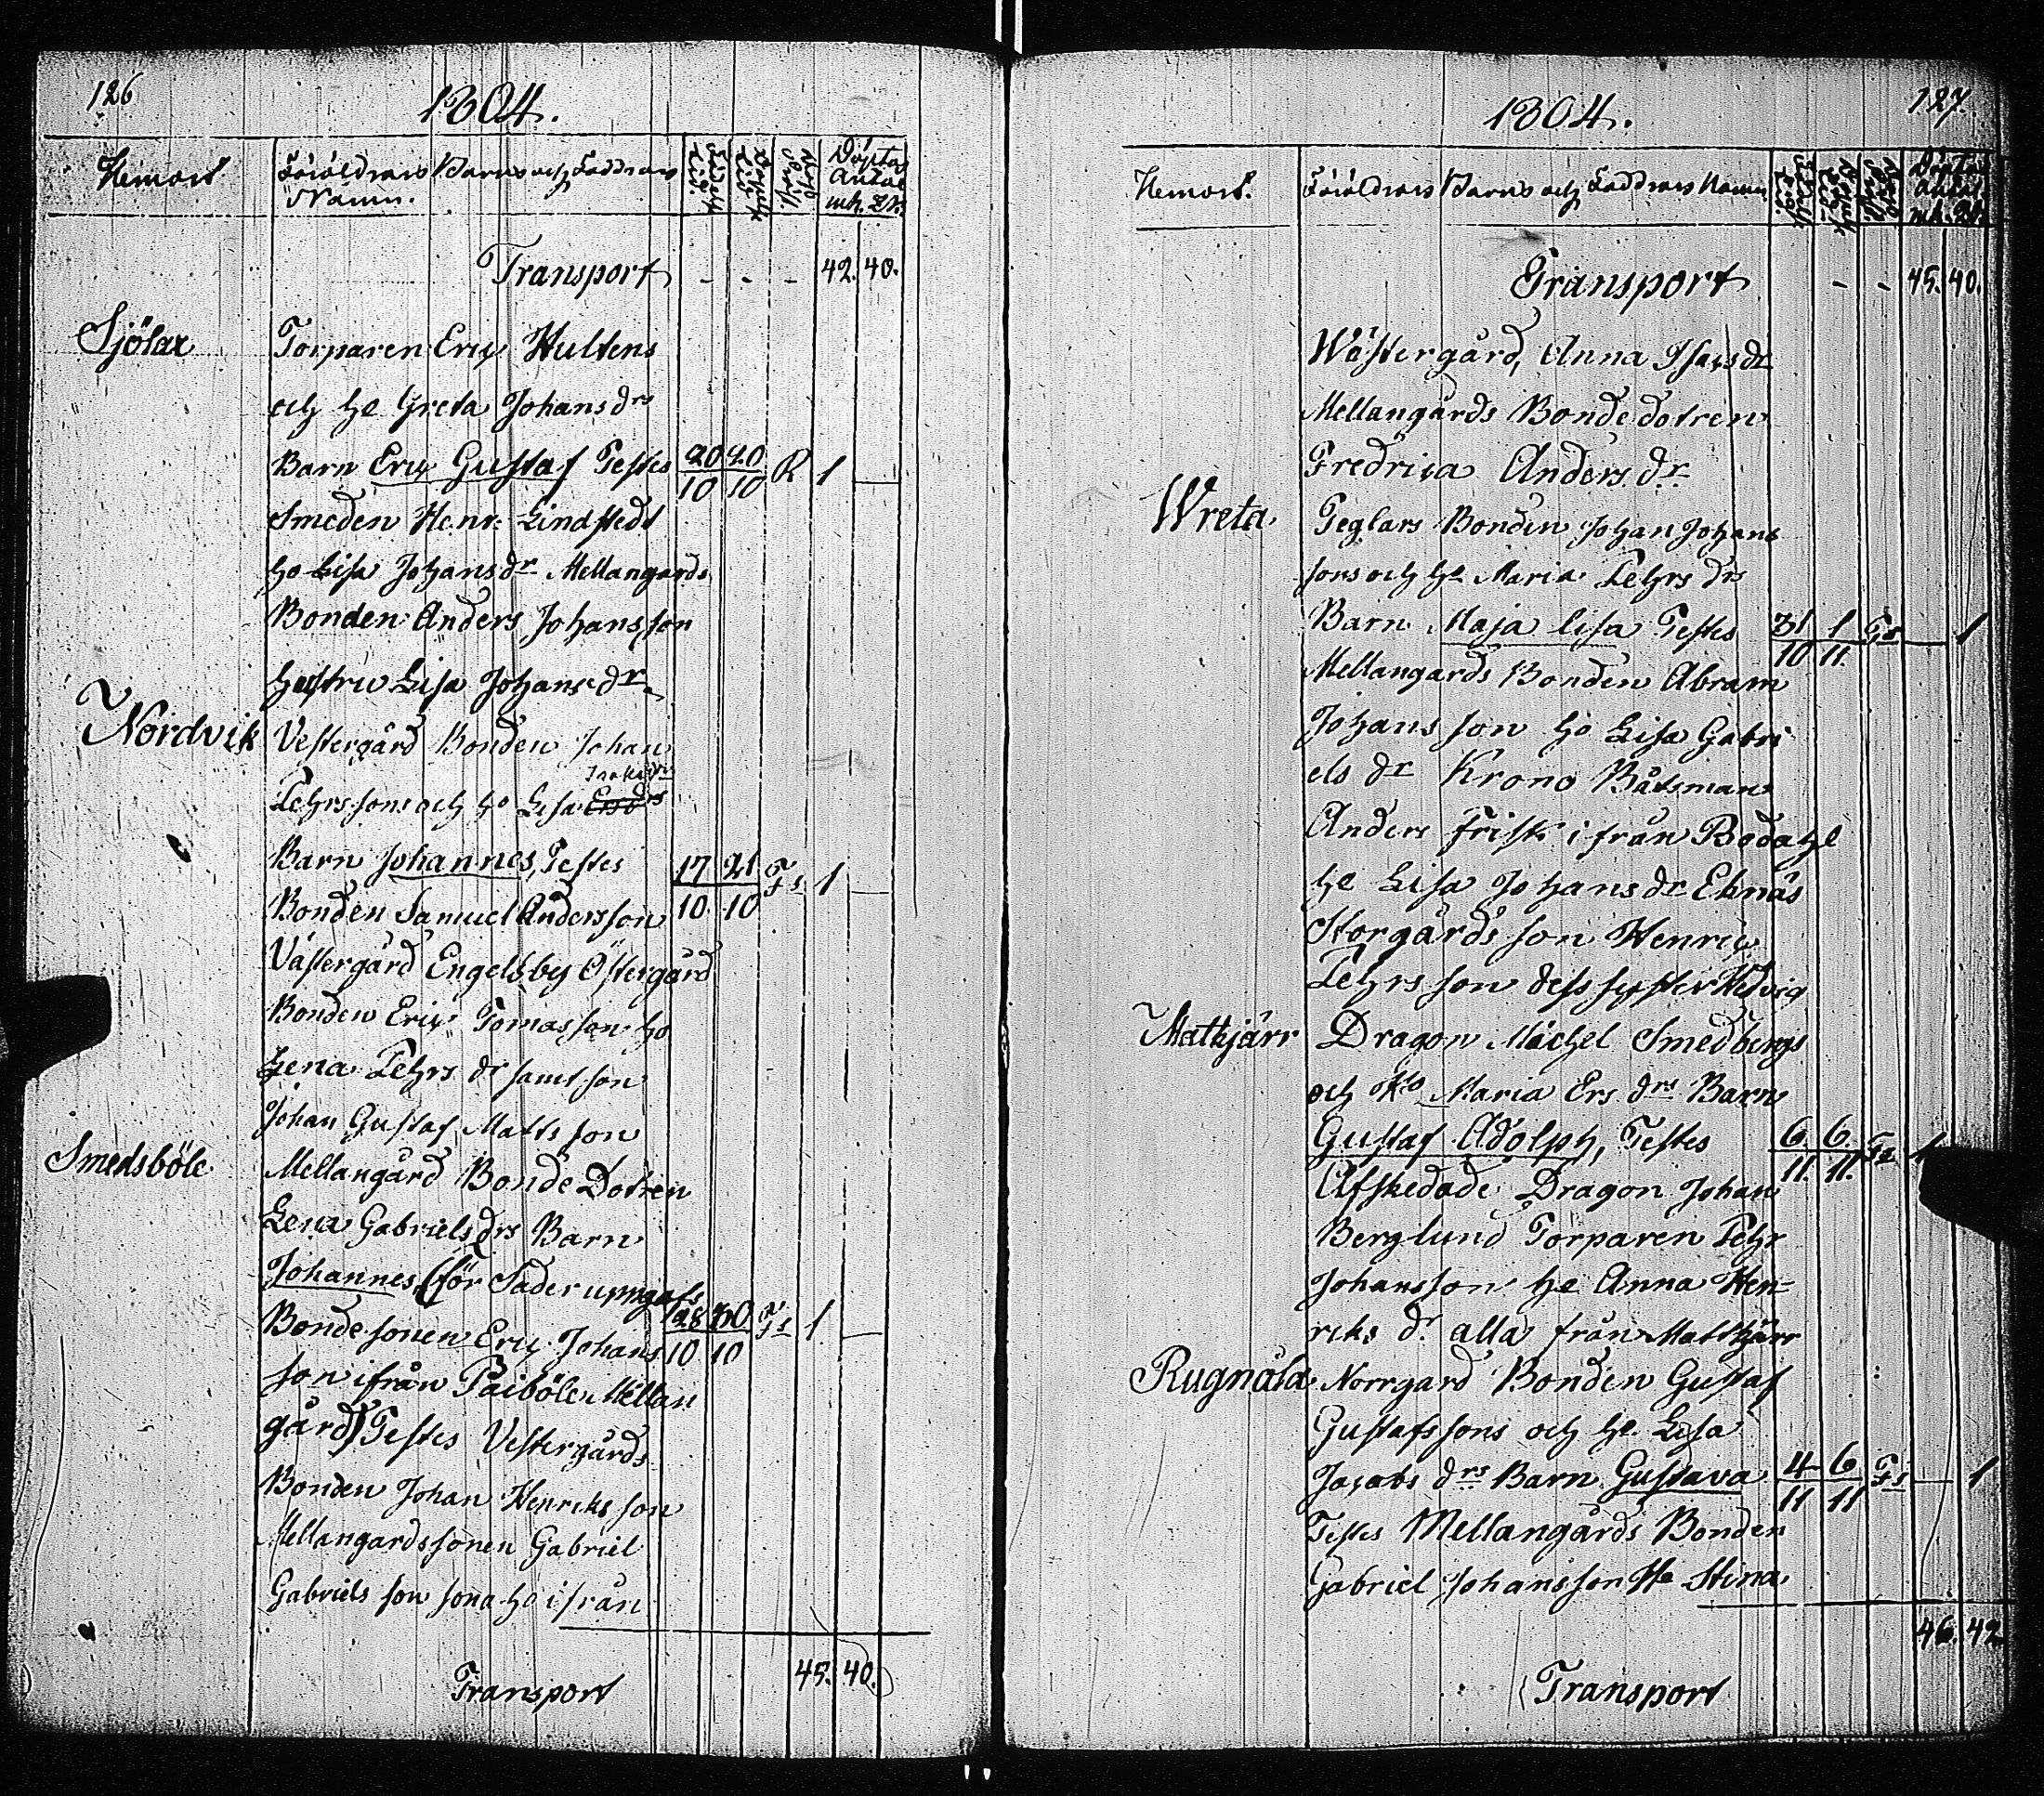 126
1804.
Hemort Föräldrars Barns och Faddrars Namn. Födelse Tid Döpelse Tid Döptas Antal mk. Qk.
Transport - - - 42. 40.
Sjölax Torparen Eric Hultens
och he Greta Johans drs
Barn Eric Gustaf Testes 20/10 20/10 R 1 —
Smeden Henr. Lindstedt
ho Lisa Johans dr Mellangårds
Bonden Anders Johansson
hustru Lisa Johans dr
Nordvik Vestergård Bonden Johan
Isaks drs
Pehrssons och ho Lisa Ersdrs
Barn Johannes, Testes 17/10 21/10 Fs 1 —
Bonden Samuel Andersson
Västergård Engelsby Östergård
Bonden Eric Tomasson ho
Lena Pehrs dr samt son
Johan Gustaf Matts son
Smedsböle Mellangård Bonde Dotren
Lena Gabriels drs Barn
Johannes, (för Fader uppgafs
Bonde sonen Eric Johans 28/10 30/10 Fs 1 —
son ifrån Paiböle Mellan
gård) Testes Vestergårds
Bonden Johan Henriks son
Mellangårds sonen Gabriel
Gabriels son ho ifrån
Transport 45. 40.
127.
1804.
Hemort. Föräldrars Barns och Faddrars Namn. Födelse Tid. Döpelse Tid Döptas Antal mk. Qk.
Transport - - 45. 40.
Wästergård, Anna Isacs dr
Mellangårds Bonde dotren
Fredrica Anders dr
Wreta. Teglars Bonden Johan Johans
sons och he Maria Pehrs drs
Barn Maja Lisa Testes 31/10 1/11. Fs — 1
Mellangårds Bonden Abram
Johans son ho Lisa Gabri
els dr Krono Båtsman
Anders Frisk ifrån Bodahl
he Lisa Johans dr Eknäs
Storgårds son Henric
Pehrs son dess syster Hedvig
Mattkjärr Dragon Michel Smedbergs
och Ho Maria Ers drs Barn
Gustaf Adolph, Testes 6/11. 6/11. Fs 1
Afskedade Dragon Johan
Berglund Torparen Pehr
Johansson he Anna Hen-
riks dr. alla från Mattkjärr
Rugnäla Norrgård Bonden Gustaf
Gustafssons och he. Lisa
Jacobs drs Barn Gustava 4/11 6/11 Fs — 1
Testes Mellangårds Bonden
Gabriel Johansson He Stina
46. 42
Transport